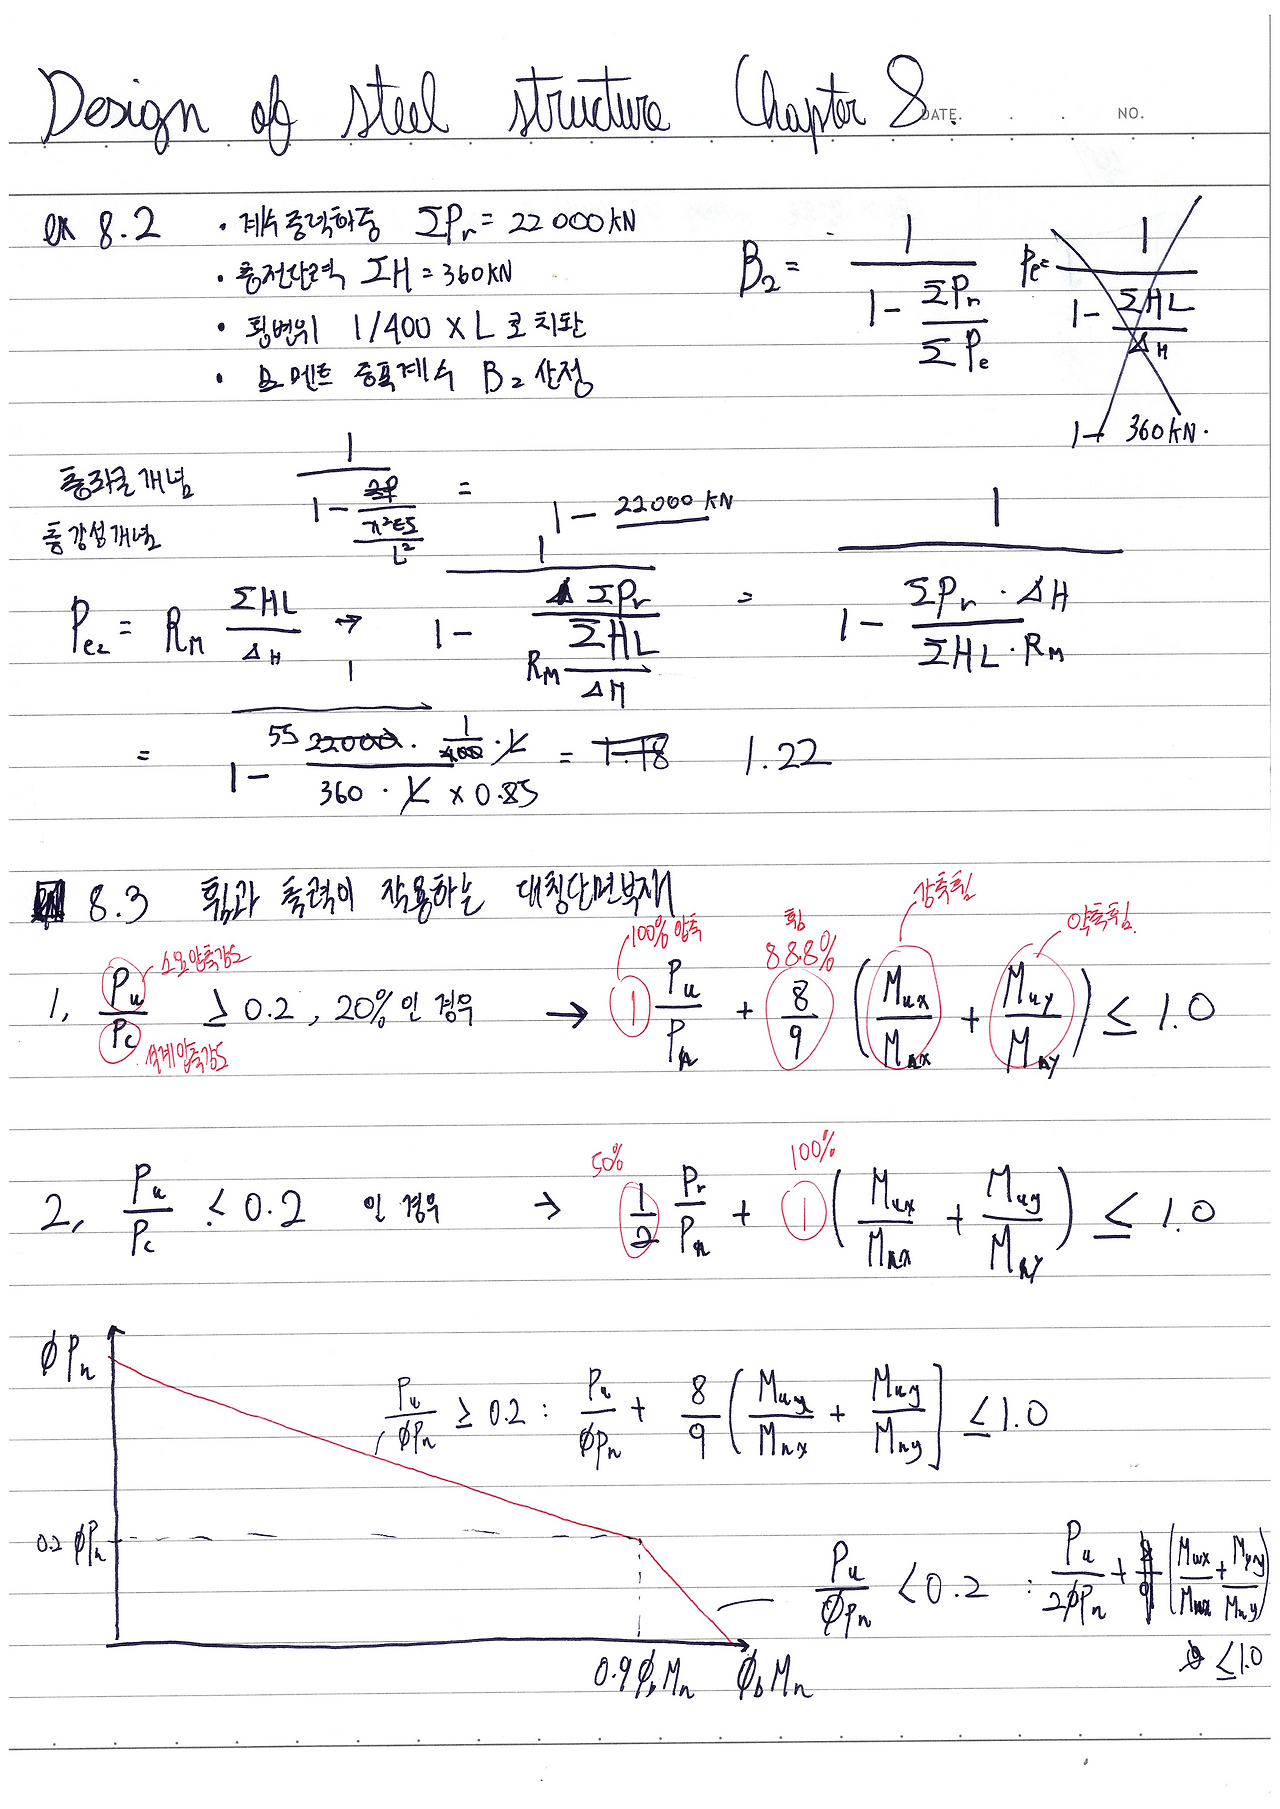 Design of steel structure Chapter 8
DATE. . . NO.
ex 8.2 · 계수중력하중 ΣPr = 22000kN
· 층전단력 ΣH = 360kN
· 횡변위 1/400 × L로 치환
· 모멘트 증폭계수 B₂ 산정
B₂ = 1 / (1 - ΣPr/ΣPe)
Pe = 1 / (1 - ΣHL/ΔH)
1- 360kN.
층좌굴개념
층강성개념
1 / (1 - ΣP/(π²EI/L²)) =
1 - 22000kN
Pe₂ = RM ΣHL/ΔH → 1 / (1 - ΣPr/(RM ΣHL/ΔH)) = 1 / (1 - ΣPr·ΔH/(ΣHL·RM))
= 1 / (1 - 55 22000·1/400·L/(360·L×0.85)) = 1.18 1.22
8.3 휨과 축력이 작용하는 대칭단면부재
강축휨
약축휨
100% 압축
휨
88.8%
소요압축강도
1, Pu/Pc ≥ 0.2, 20%인 경우 → 1 Pu/Pn + 8/9 (Mux/Mnx + Muy/Mny) ≤ 1.0
설계압축강도
50%
100%
2, Pu/Pc < 0.2 인 경우 → 1/2 Pr/Pn + 1 (Mux/Mnx + Muy/Mny) ≤ 1.0
φPn
Pu/φPn ≥ 0.2 : Pu/φPn + 8/9 (Mux/Mnx + Muy/Mny] ≤ 1.0
0.2 φPn
Pu/φPn < 0.2 : Pu/2φPn + (Mux/Mnx + Muy/Mny)
≤ 1.0
0.9φbMn φbMn